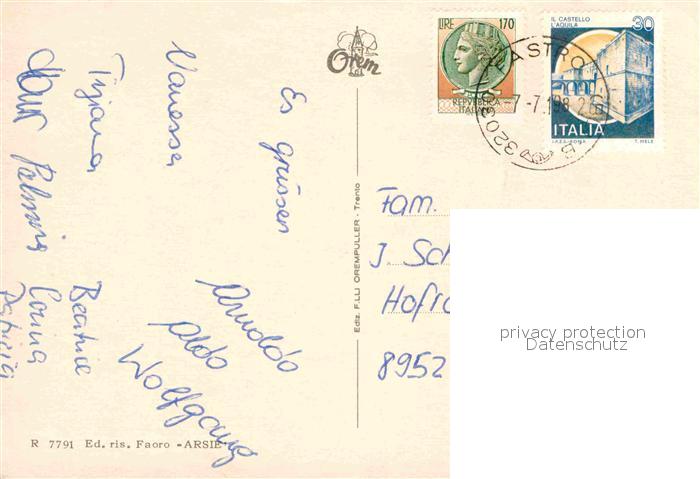 Orem
LIRE 170
REPVBBLICA
ITALIANA
IL CASTELLO
L'AQUILA
30
ITALIA
I.P.Z.S.-ROMA T. MELE
FASTRO
-7-7.198
3203
B
Es grüssen
Vanessa
Tiziana
Palmira
Beatrice
Corina
Patrizia
Arnoldo
Aldo
Wolfgang
Fam.
J Sch
Hofr
8952
Ediz. F.LLI OREMPULLER - Trento
R 7791 Ed. ris. Faoro -ARSIE'
privacy protection
Datenschutz